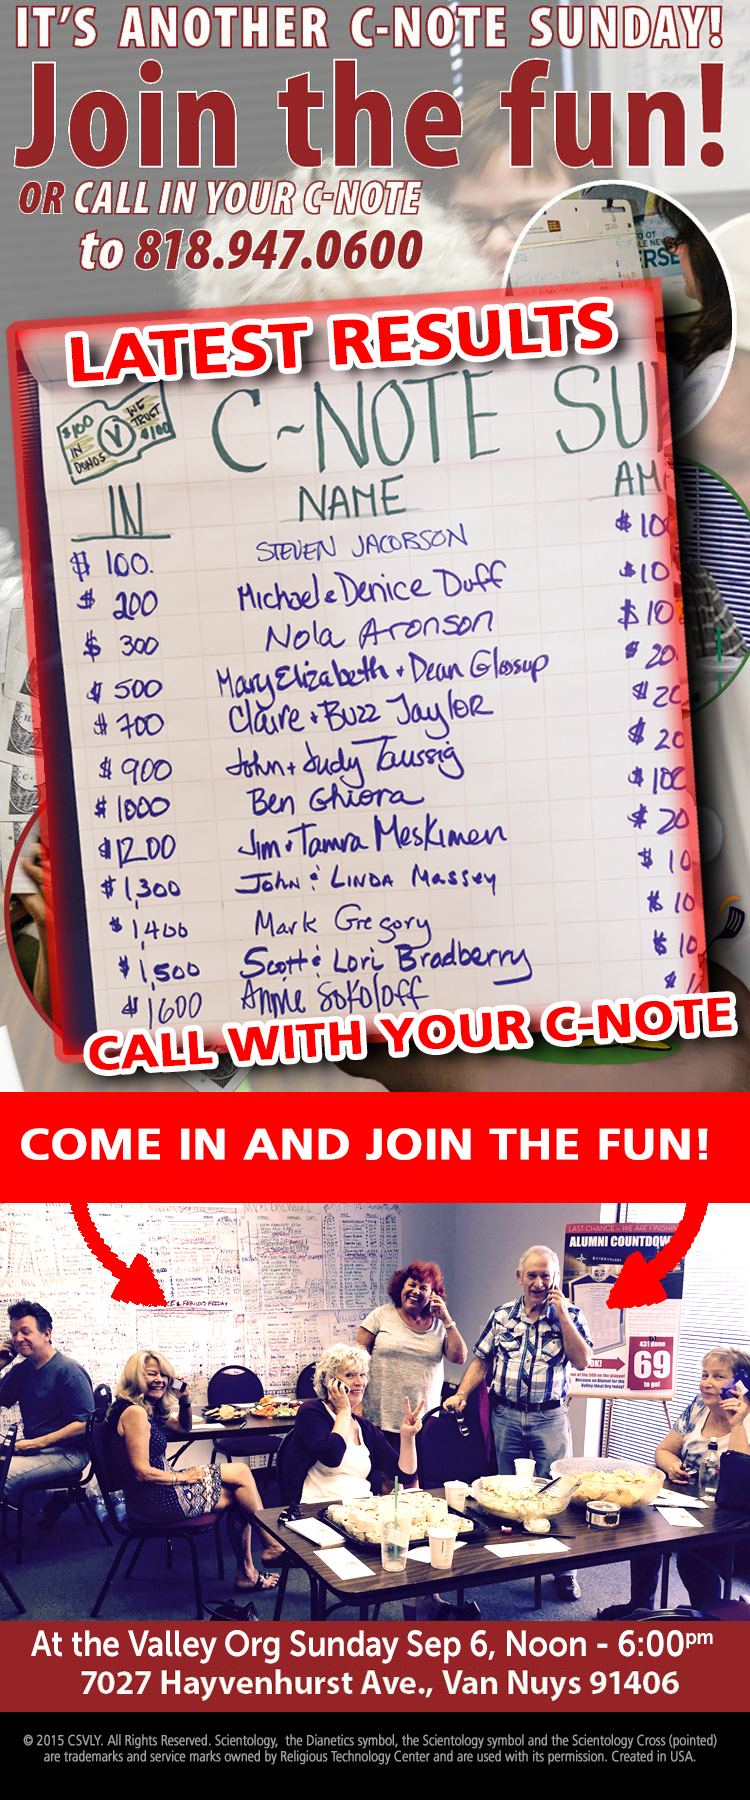 IT'S ANOTHER C-NOTE SUNDAY!
Join the fun!
OR CALL IN YOUR C-NOTE
to 818.947.0600
LATEST RESULTS
$100 IN DONOS V WE TRUST $100
C~NOTE SU
IN NAME AM
$ 100. STEVEN JACOBSON $ 10
$ 200 Michael & Denice Duff $10
$ 300 Nola Aronson $10
$ 500 Mary Elizabeth + Dean Glossup $ 20
$ 700 Claire + Buzz Jaylor $ 20
$ 900 John + Judy Taussig $ 20
$ 1000 Ben Ghiora $ 100
$1200 Jim & Tamra Meskimen $ 20
$ 1,300 John & LINDA Massey $ 10
$ 1,400 Mark Gregory $ 10
$ 1,500 Scott & Lori Bradberry $ 10
$ 1600 Annie Sokoloff $ 1
CALL WITH YOUR C-NOTE
COME IN AND JOIN THE FUN!
LAST CHANCE – WE ARE FINISHIN
ALUMNI COUNTDOW
431 done
69
to go!
Become an Alumni for the
Valley Ideal Org today!
At the Valley Org Sunday Sep 6, Noon - 6:00pm
7027 Hayvenhurst Ave., Van Nuys 91406
© 2015 CSVLY. All Rights Reserved. Scientology, the Dianetics symbol, the Scientology symbol and the Scientology Cross (pointed)
are trademarks and service marks owned by Religious Technology Center and are used with its permission. Created in USA.